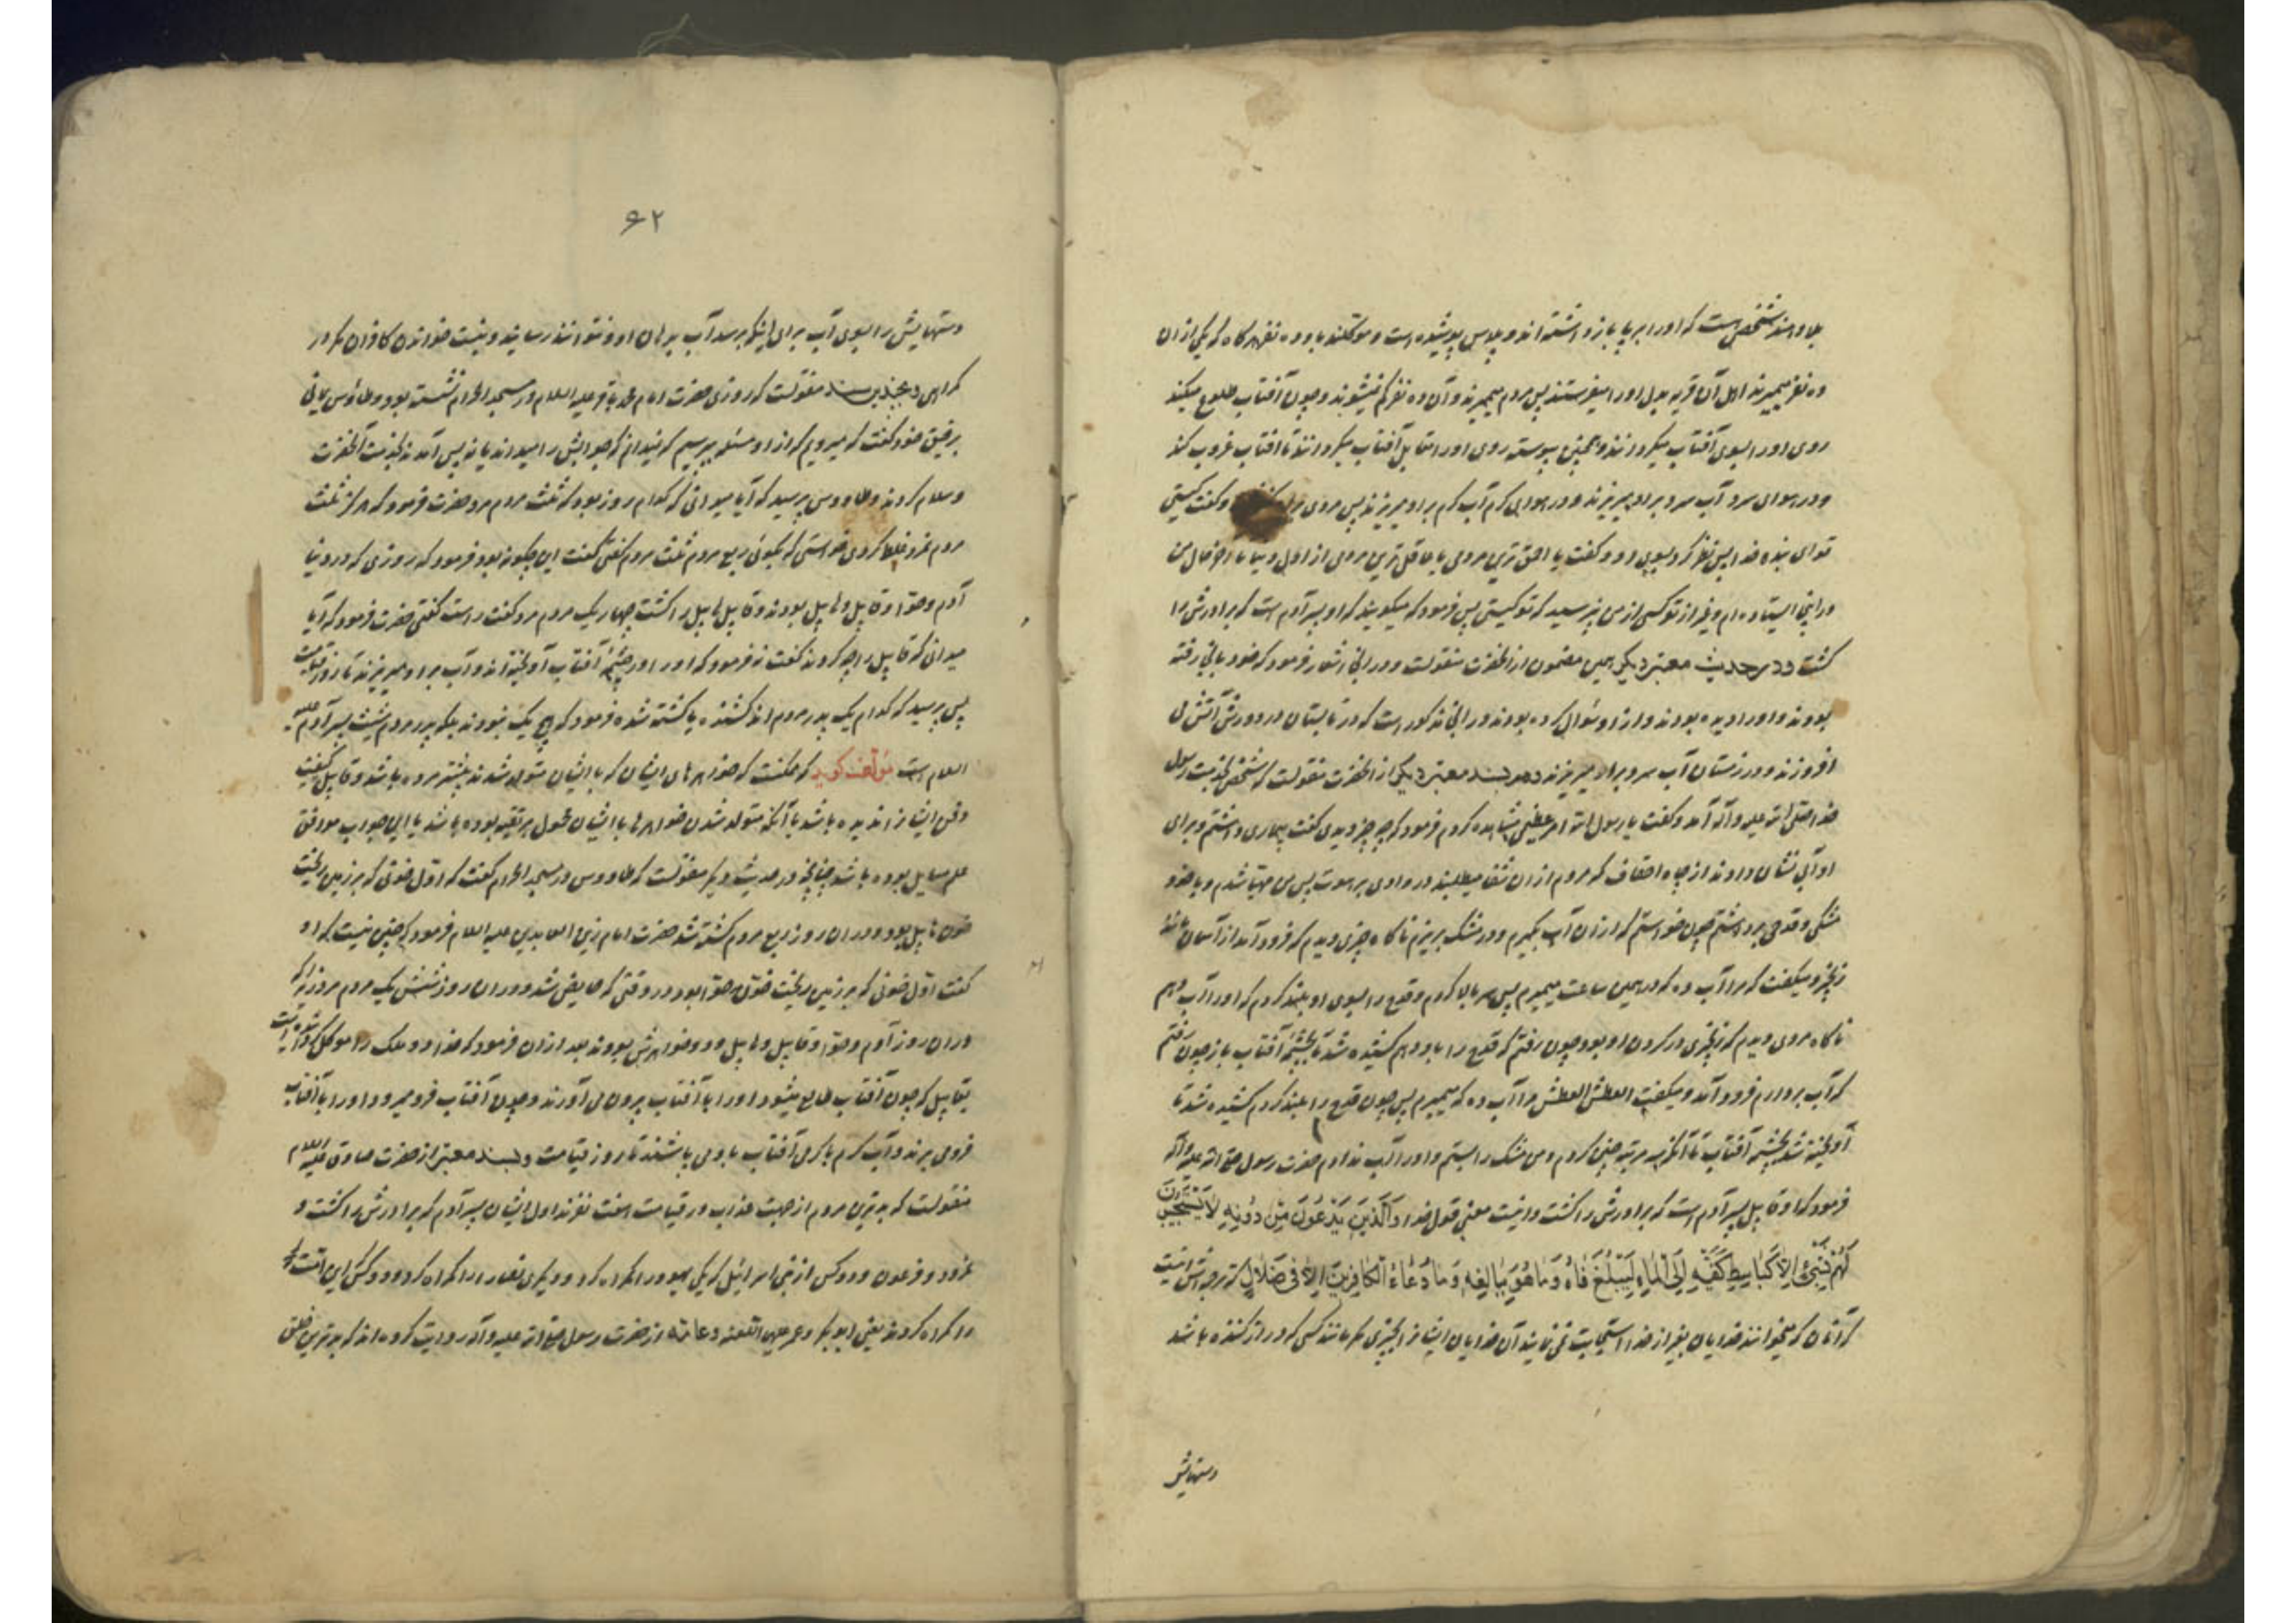 بلاد هند شخصی است که او را بر پا باز داشته‌اند و پلاس پوشیده است و موکلند باو ده نفر هر گاه که یکی از آن
ده نفر میمیرند اهل آن قریه بدل او را میفرستند پس مردم میمیرند و آن ده نفر کم نمیشوند و چون آفتاب طلوع میکند
روی او را بسوی آفتاب میگردانند و همچنین پیوسته روی او را مقابل آفتاب میگردانند تا آفتاب غروب کند
و در هوای سرد آب سرد بر او میریزند و در هوای گرم آب گرم بر او میریزند پس مردی و گفت کیستی
تو ای بنده خدا پس نظر کرد بسوی او و گفت یا احمق ترین مردمی یا عاقل ترین مردمی از اول دنیا تا حال من
در اینجا ایستاده‌ام و غیر از تو کسی از من نپرسید که تو کیستی پس فرمود که میگویند که او پسر آدم است که برادرش را
کشت و در حدیث معتبر دیگر همین مضمون از آنحضرت منقولست و در آنجا اشعار فرمود که خود باآنجا رفته
بودند و او را دیده بودند و از او سؤال کرده بودند و در آنجا مذکور است که در تابستان در دورش آتش می
افروزند و در زمستان آب سرد بر او میریزند و در بسند معتبر دیگر از آنحضرت منقولست که شخصی بخدمت رسول
خدا صلی الله علیه و آله آمد و گفت یا رسول الله امر عظیمی مشاهده کردم فرمود که چه چیز دیدی گفت بیماری داشتم و برای
او آبی نشان دادند از چاه احقاف که مردم از آن شفا میطلبند در وادی برهوت پس من مهیا شدم و با خود
مشکی و قدحی برداشتم چون خواستم که از آن آب بگیرم و در مشک بریزم ناگاه چیزی دیدم که فرود آمد از آسمان مانند
زنجیر و میگفت که مرا آب ده که در همین ساعت میمیرم پس سر بالا کردم و قدح را بسوی او بلند کردم که او را آب دهم
ناگاه مردی دیدم که زنجیری در گردن او بود چون رفتم که قدح را باو دهم کشیده شد تا بچشمه آفتاب باز چون رفتم
که آب بردارم فرود آمد و میگفت العطش العطش مرا آب ده که میمیرم پس چون قدح را بلند کردم کشیده شد تا
آویخته شد بچشمه آفتاب تا آنکه سه مرتبه چنین کردم و من مشک را بستم و او را آب ندادم حضرت رسول صلی الله علیه و آله
فرمود که او قابیل پسر آدم است که برادرش را کشت و اینست معنی قول خدا وَالَّذِينَ يَدْعُونَ مِنْ دُونِهِ لَا يَسْتَجِيبُونَ
لَهُمْ بِشَيْءٍ إِلَّا كَبَاسِطِ كَفَّيْهِ إِلَى الْمَاءِ لِيَبْلُغَ فَاهُ وَمَا هُوَ بِبَالِغِهِ وَمَا دُعَاءُ الْكَافِرِينَ إِلَّا فِي ضَلَالٍ که ترجمه‌اش اینست
که آنان که میخوانند خدایان بغیر از خدا استجابت نمی‌نمایند آن خدایان ایشانرا بچیزی مگر مانند کسی که دراز کننده باشد
دستهایش
۶۲
دستهایش را بسوی آب برای اینکه برسد آب بدهان او و نتوانند رسانید و نیست خواندن کافران مگر در
گمراهی و بچندین سند منقولست که روزی حضرت امام محمد باقر علیه السلام در مسجد الحرام نشسته بود و طاوس یمانی
برفیق خود گفت که میرویم که از او مسئله بپرسیم که نمیدانم که جوابش را میداند یا نه پس آمدند بخدمت آنحضرت
و سلام کردند و طاووس پرسید که آیا میدانی که کدام روز بود که ثلث مردم مرد حضرت فرمود که هرگز ثلث
مردم نمرد غلط کردی خواستی که بگوئی ربع مردم ثلث مردم گفتی گفت این چگونه بود فرمود که روزی که در دنیا
آدم و حوا و قابیل و هابیل بودند و قابیل هابیل را کشت چهار یک مردم مرد گفت راست گفتی حضرت فرمود که آیا
میدانی که قابیل را چه کردند گفت نه فرمود که او را در چشمه آفتاب آویخته‌اند و آب بر او میریزند تا روز قیامت
پس پرسید که کدام یک پدر مردم اند کشنده یا کشته شده فرمود که هیچ یک نبودند بلکه پدر مردم شیث پسر آدم علیه
السلام است مؤلف گوید که ممکنست که خواهرهای ایشان که با ایشان متولد شدند پیشتر مرده باشد و قابیل کیفیت
دفن ایشانرا ندیده باشد یا آنکه متولد شدن خواهرها با ایشان محمول بر تقیه بوده باشد یا این جواب موافق
علم سایل بوده باشد چنانچه در حدیث دیگر منقولست که طاووس در مسجد الحرام گفت که اول خونی که بر زمین ریخت
خون هابیل بود و در آن روز ربع مردم کشته شد حضرت امام زین العابدین علیه السلام فرمود که چنین نیست که او
گفت اول خونی که بر زمین ریخت خون حوا بود در وقتی که حایض شد و در آن روز شش یک مردم مرد زیرا که
در آن روز آدم و حوا و قابیل و هابیل و دو خواهرش بودند بعد از آن فرمود که خدا دو ملک را موکل گردانیده است
بقابیل که چون آفتاب طالع میشود او را با آفتاب بیرون می‌آورند و چون آفتاب فرو میرود او را با آفتاب
فرو می‌برند و آب گرم با گرمی آفتاب باو می پاشند تا روز قیامت و بسند معتبر از حضرت صادق علیه السلام
منقولست که بدترین مردم از جهت عذاب در قیامت هفت نفرند اول ایشان پسر آدم که برادرش را کشت و
نمرود و فرعون و دو کس از بنی اسرائیل که یکی یهود را گمراه کرد و دیگری نصارا را گمراه کرد و دو کس این امت
را گمراه کردند یعنی ابوبکر و عمر علیهما اللعنه و عامه از حضرت رسول صلی الله علیه و آله روایت کرده‌اند که بدترین خلق